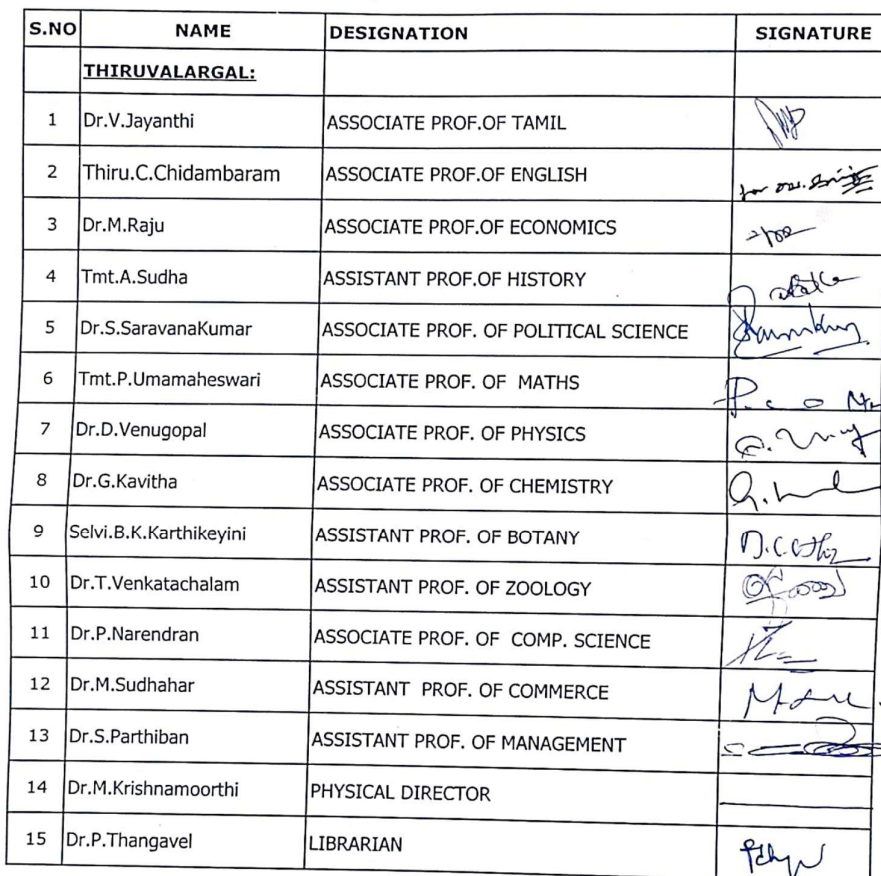 S.NO NAME DESIGNATION SIGNATURE
THIRUVALARGAL:
1 Dr.V.Jayanthi ASSOCIATE PROF.OF TAMIL
2 Thiru.C.Chidambaram ASSOCIATE PROF.OF ENGLISH
3 Dr.M.Raju ASSOCIATE PROF.OF ECONOMICS
4 Tmt.A.Sudha ASSISTANT PROF.OF HISTORY
5 Dr.S.SaravanaKumar ASSOCIATE PROF. OF POLITICAL SCIENCE
6 Tmt.P.Umamaheswari ASSOCIATE PROF. OF MATHS
7 Dr.D.Venugopal ASSOCIATE PROF. OF PHYSICS
8 Dr.G.Kavitha ASSOCIATE PROF. OF CHEMISTRY
9 Selvi.B.K.Karthikeyini ASSISTANT PROF. OF BOTANY
10 Dr.T.Venkatachalam ASSISTANT PROF. OF ZOOLOGY
11 Dr.P.Narendran ASSOCIATE PROF. OF COMP. SCIENCE
12 Dr.M.Sudhahar ASSISTANT PROF. OF COMMERCE
13 Dr.S.Parthiban ASSISTANT PROF. OF MANAGEMENT
14 Dr.M.Krishnamoorthi PHYSICAL DIRECTOR
15 Dr.P.Thangavel LIBRARIAN